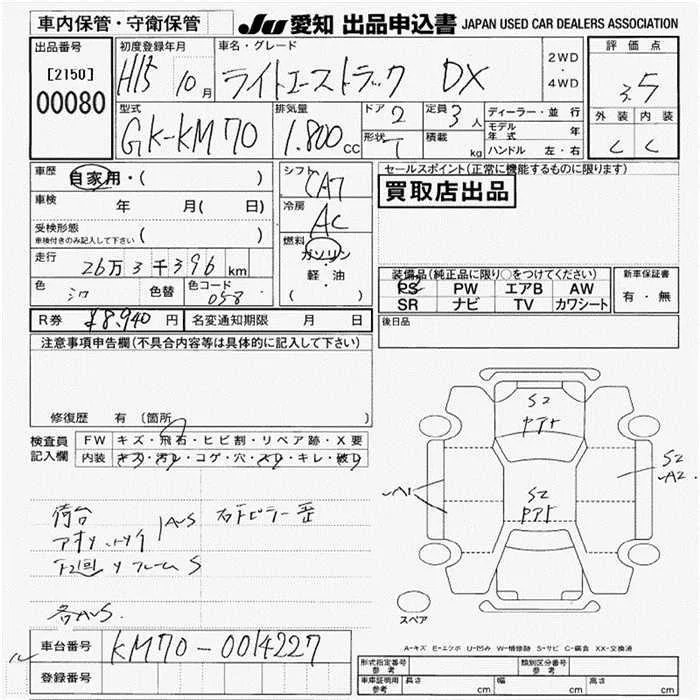 車内保管・守衛保管
JU 愛知 出品申込書 JAPAN USED CAR DEALERS ASSOCIATION
出品番号
[2150]
00080
初度登録年月
H15 10月
車名・グレード
ライトエーストラック DX
2WD
・
4WD
評価点
3.5
外装 内装
C C
型式
GK-KM70
排気量
1.800 CC
ドア 2
形状 T
定員 3 人
積載 kg
ディーラー・並行
モデル年式 年
ハンドル 左・右
車歴
自家用・( )
車検 年 月( 日)
受検形態
車検付きのみ記入して下さい ( )
走行
26万3千396 km
色 シロ 色替 色コード 058
シフト
CA7
冷房
AC
燃料
ガソリン
・
軽・油
( )
セールスポイント(正常に機能するものに限ります)
買取店出品
装備品(純正品に限り○をつけてください)
PS PW エアB AW
SR ナビ TV カワシート
新車保証書
有・無
R券 ¥8.940 円 名変通知期限 月 日
後日品
注意事項申告欄(不具合内容等は具体的に記入して下さい)
修復歴 有 (箇所 )
検査員記入欄
FW キズ・飛石・ヒビ割・リペア跡・X要
内装 キズ・汚レ・コゲ・穴・スレ・キレ・破レ
荷台
AUS
下回リフレームS
各AUS.
S2
ヤアト
S2
ヤアト
A1
S2
A2
スペア
A-キズ E-エクボ U-凹み W-補修跡 S-サビ C-腐食 XX-交換済
車台番号 KM70-0014227
登録番号
形式指定番号 参考
類別区分番号 参考
車庫証明用 参考 長さ cm 幅 cm 高さ cm